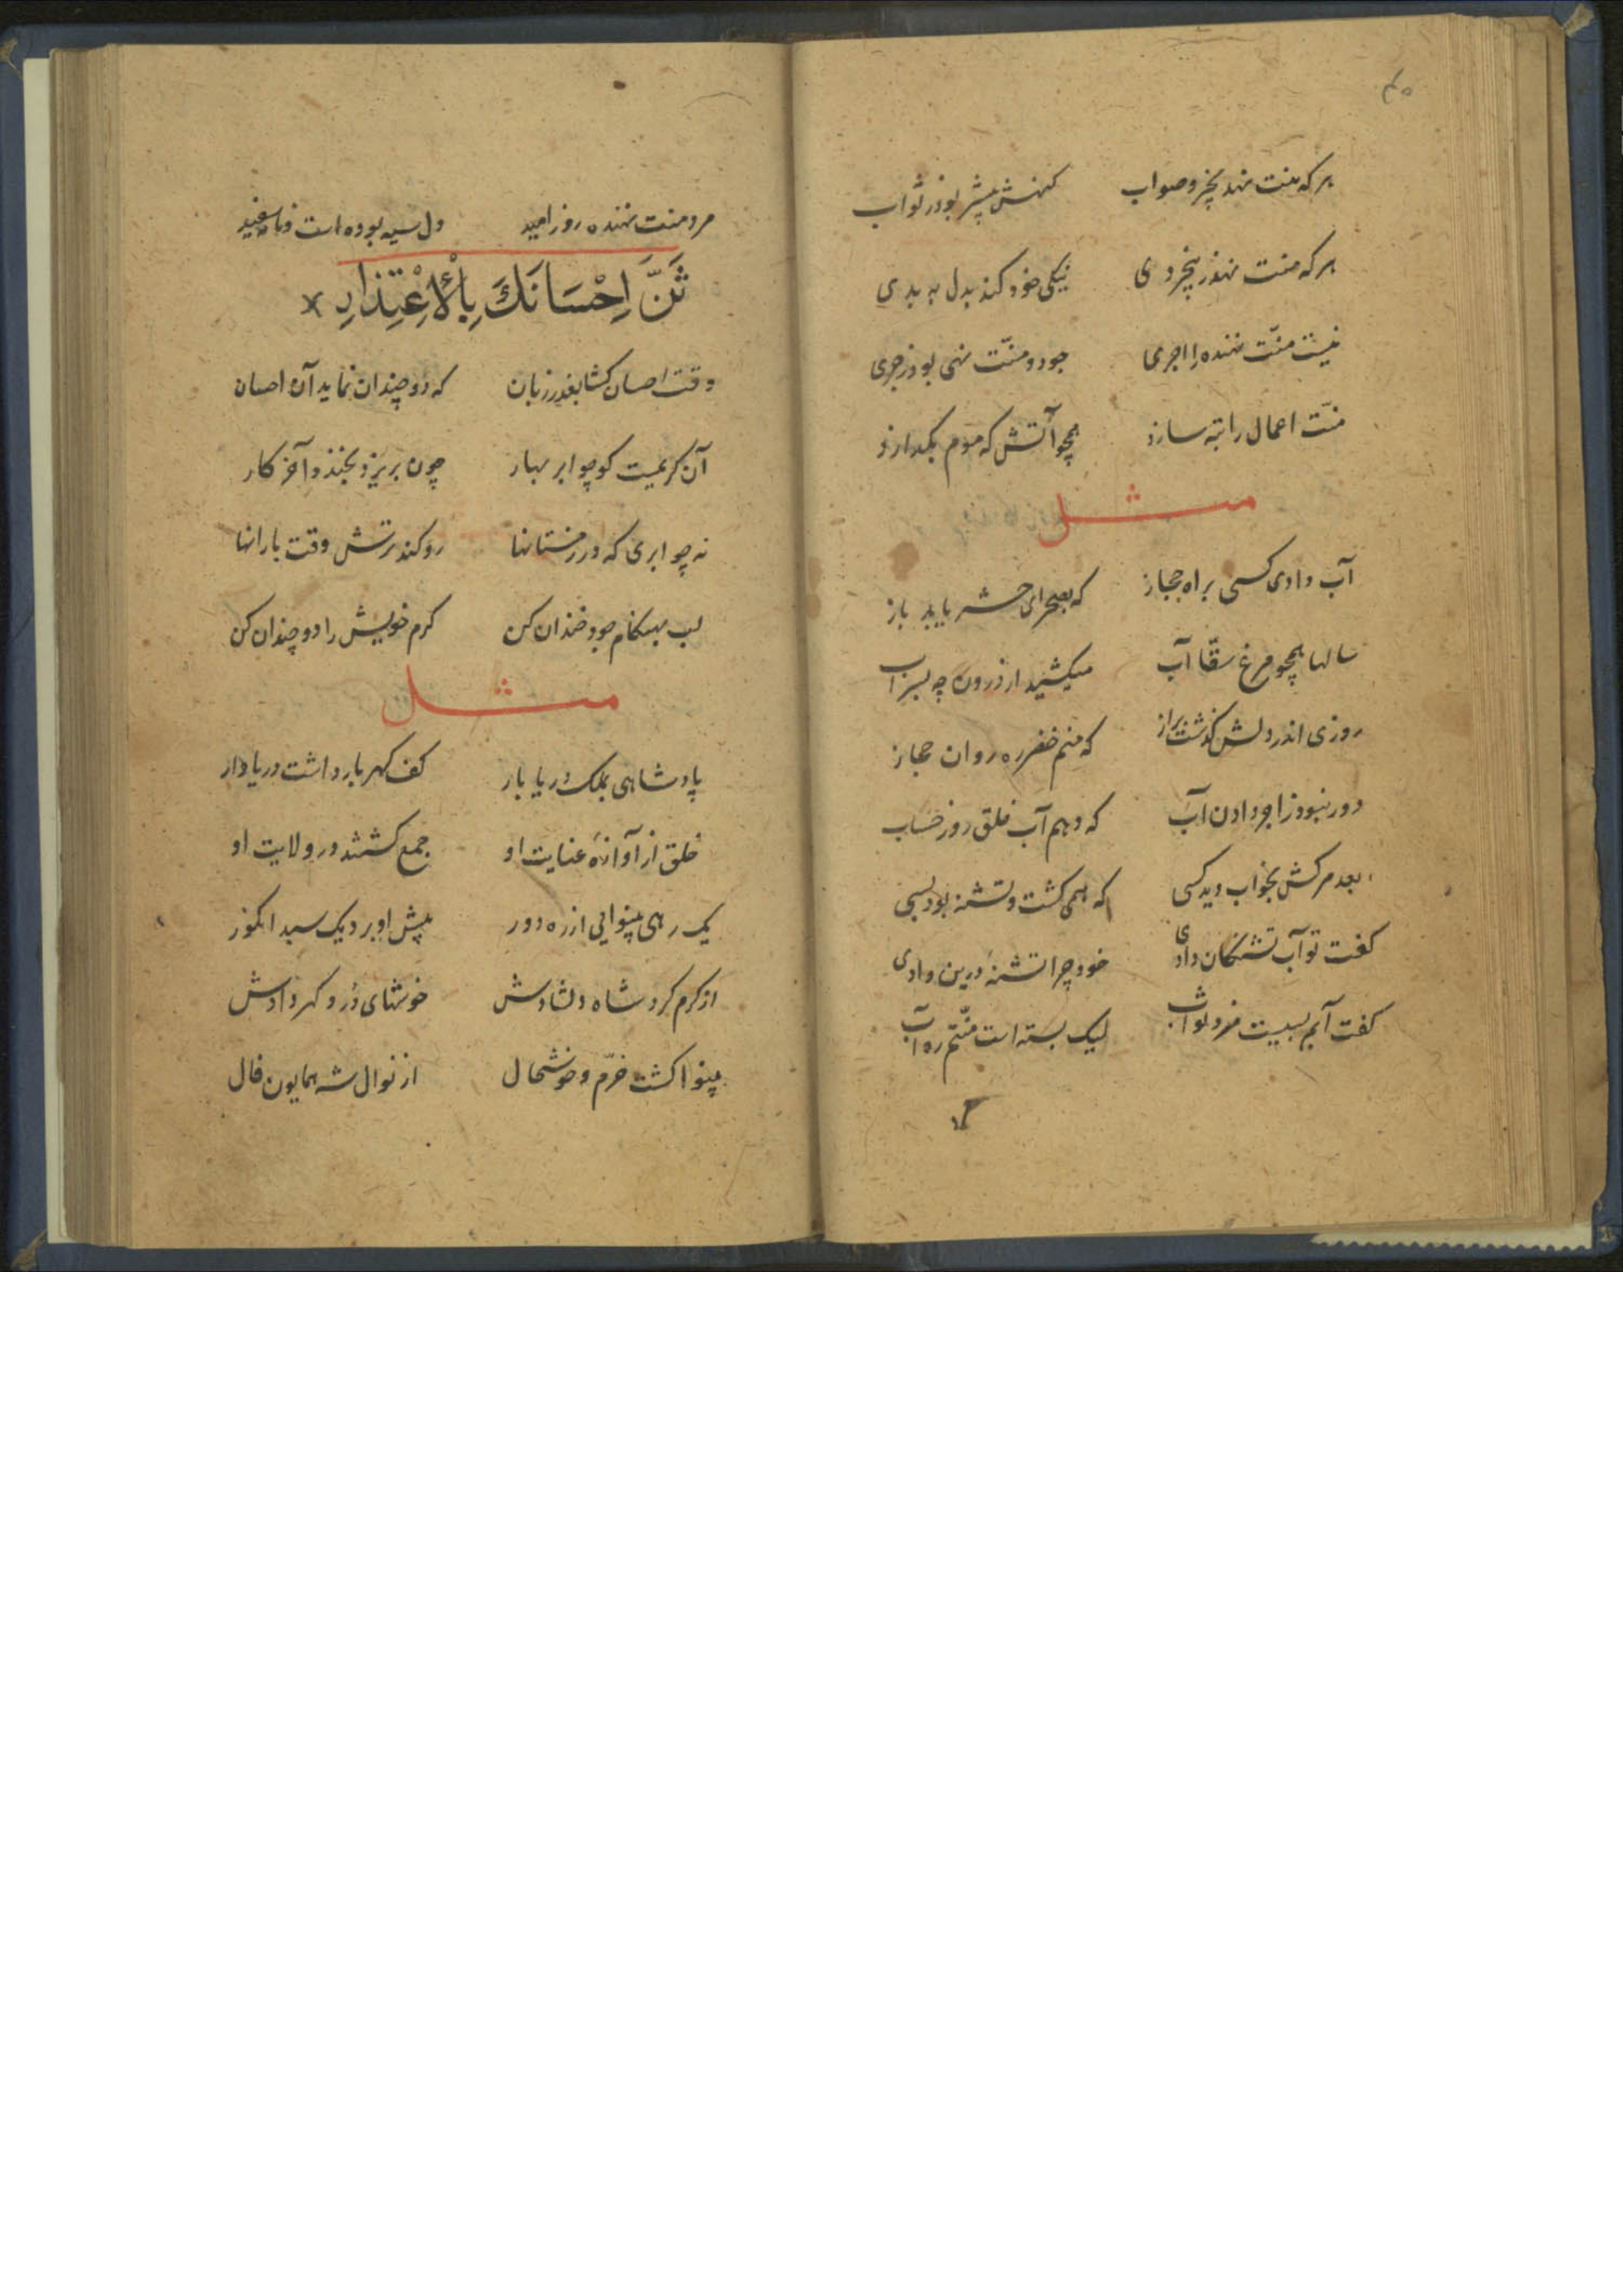 ۴۵
هر که منت نهد بخیر و صواب گنهش بیشتر بود ز ثواب
هر که منت نهد ز بیخردی نیکی خود کند بدل به بدی
نیست منّت نهنده را اجری جود و منّت نهی بود زجری
منّت اعمال را تبه سازد همچو آتش که موم بگدازد
مثل
آب دادی کسی براه حجاز که بصحرای حشر یابد باز
سالها همچو مرغ سقّا آب میکشید از درون چه بشراب
روزی اندر دلش گذشت براز که منم خضر ره روان حجاز
دور نبود ز اجر دادن آب که دهم آب خلق روز حساب
بعد مرگش بخواب دید کسی که همی گشت و تشنه بود بسی
گفت تو آب تشنگان دادی خود چرا تشنهٔ درین وادی
گفت آبم بسیست مزد ثواب لیک بسته است منّتم ره آب
مرد منت نهنده روز امید دل سیه بوده است و نامه سفید
ثَنِّ اِحْسَانَكَ بِالْاِعْتِذَارِ
وقت احسان گشا بعذر زبان که دو چندان نماید آن احسان
آن کریمیست کو چو ابر بهار چون بریزد بخندد آخر کار
نه چو ابری که در زمستانها رو کند ترش وقت بارانها
لب بهنگام جود خندان کن کرم خویش را دو چندان کن
مثل
پادشاهی بملک دریا بار کف گهربار داشت دریاوار
خلق از آوازهٔ عنایت او جمع گشتند در ولایت او
یک رهی بینوایی از ره دور پیش او برد یک سبد انگور
از کرم کرد شاه دلشادش خوشهای دُر و گهر دادش
بینوا گشت خرّم و خوشحال از نوال شه همایون فال